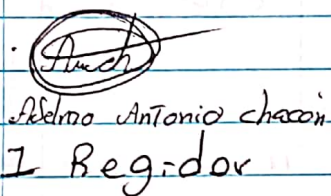 Adelmo Antonio chacón
1 Regidor